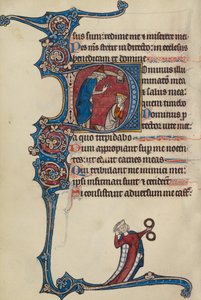 sus sum: redime me & miserere mei
Pes meus stetit in directo: in ecclesiis
benedicam te domine
Dominus illu
minatio mea
& salus mea
quem timebo
Dominus p
tector vite mee
a quo trepidabo
Dum appropiant sup me nocen
tes: ut edant carnes meas
Qui tribulant me inimici mei
ipsi infirmati sunt & cecider
Si consistant adversum me cast